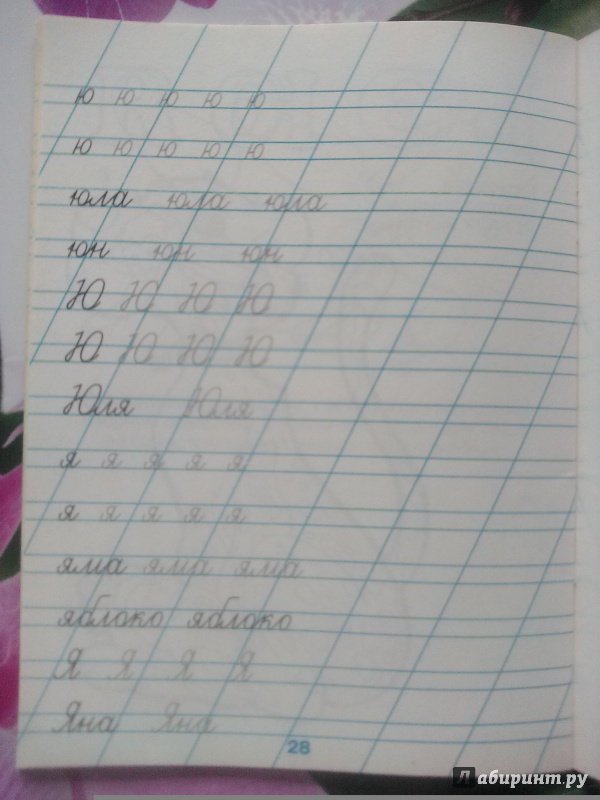 ю ю ю ю ю
ю ю ю ю ю
юла юла юла
юн юн юн
Ю Ю Ю Ю
Ю Ю Ю Ю
Юля Юля
я я я я я
я я я я я
яма яма яма
яблоко яблоко
Я Я Я Я
Яна Яна
28
Лабиринт.ру